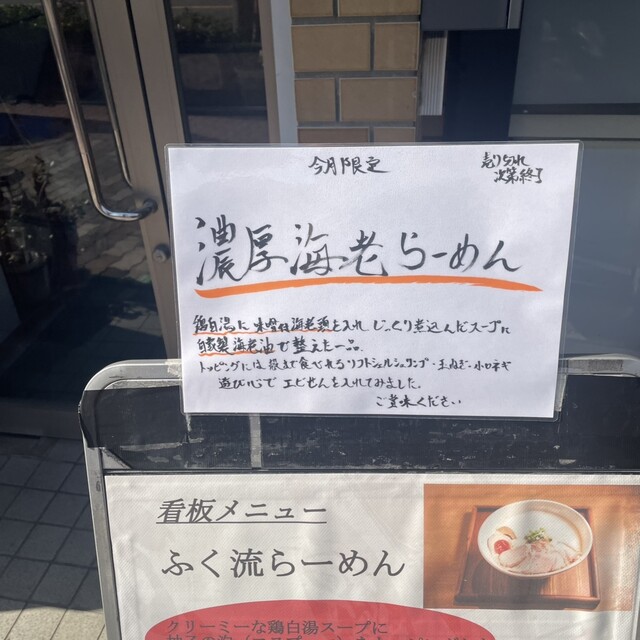 今月限定
売り切れ
次第終了
濃厚海老らーめん
鶏白湯に味噌と海老頭を入れ じっくり煮込んだスープに
自家製海老油で整えた一品。
トッピングには殻まで食べれるソフトシェルシュリンプ・玉ねぎ・小口ネギ
遊び心でエビせんを入れてみました。
ご賞味ください
看板メニュー
ふく流らーめん
クリーミーな鶏白湯スープに